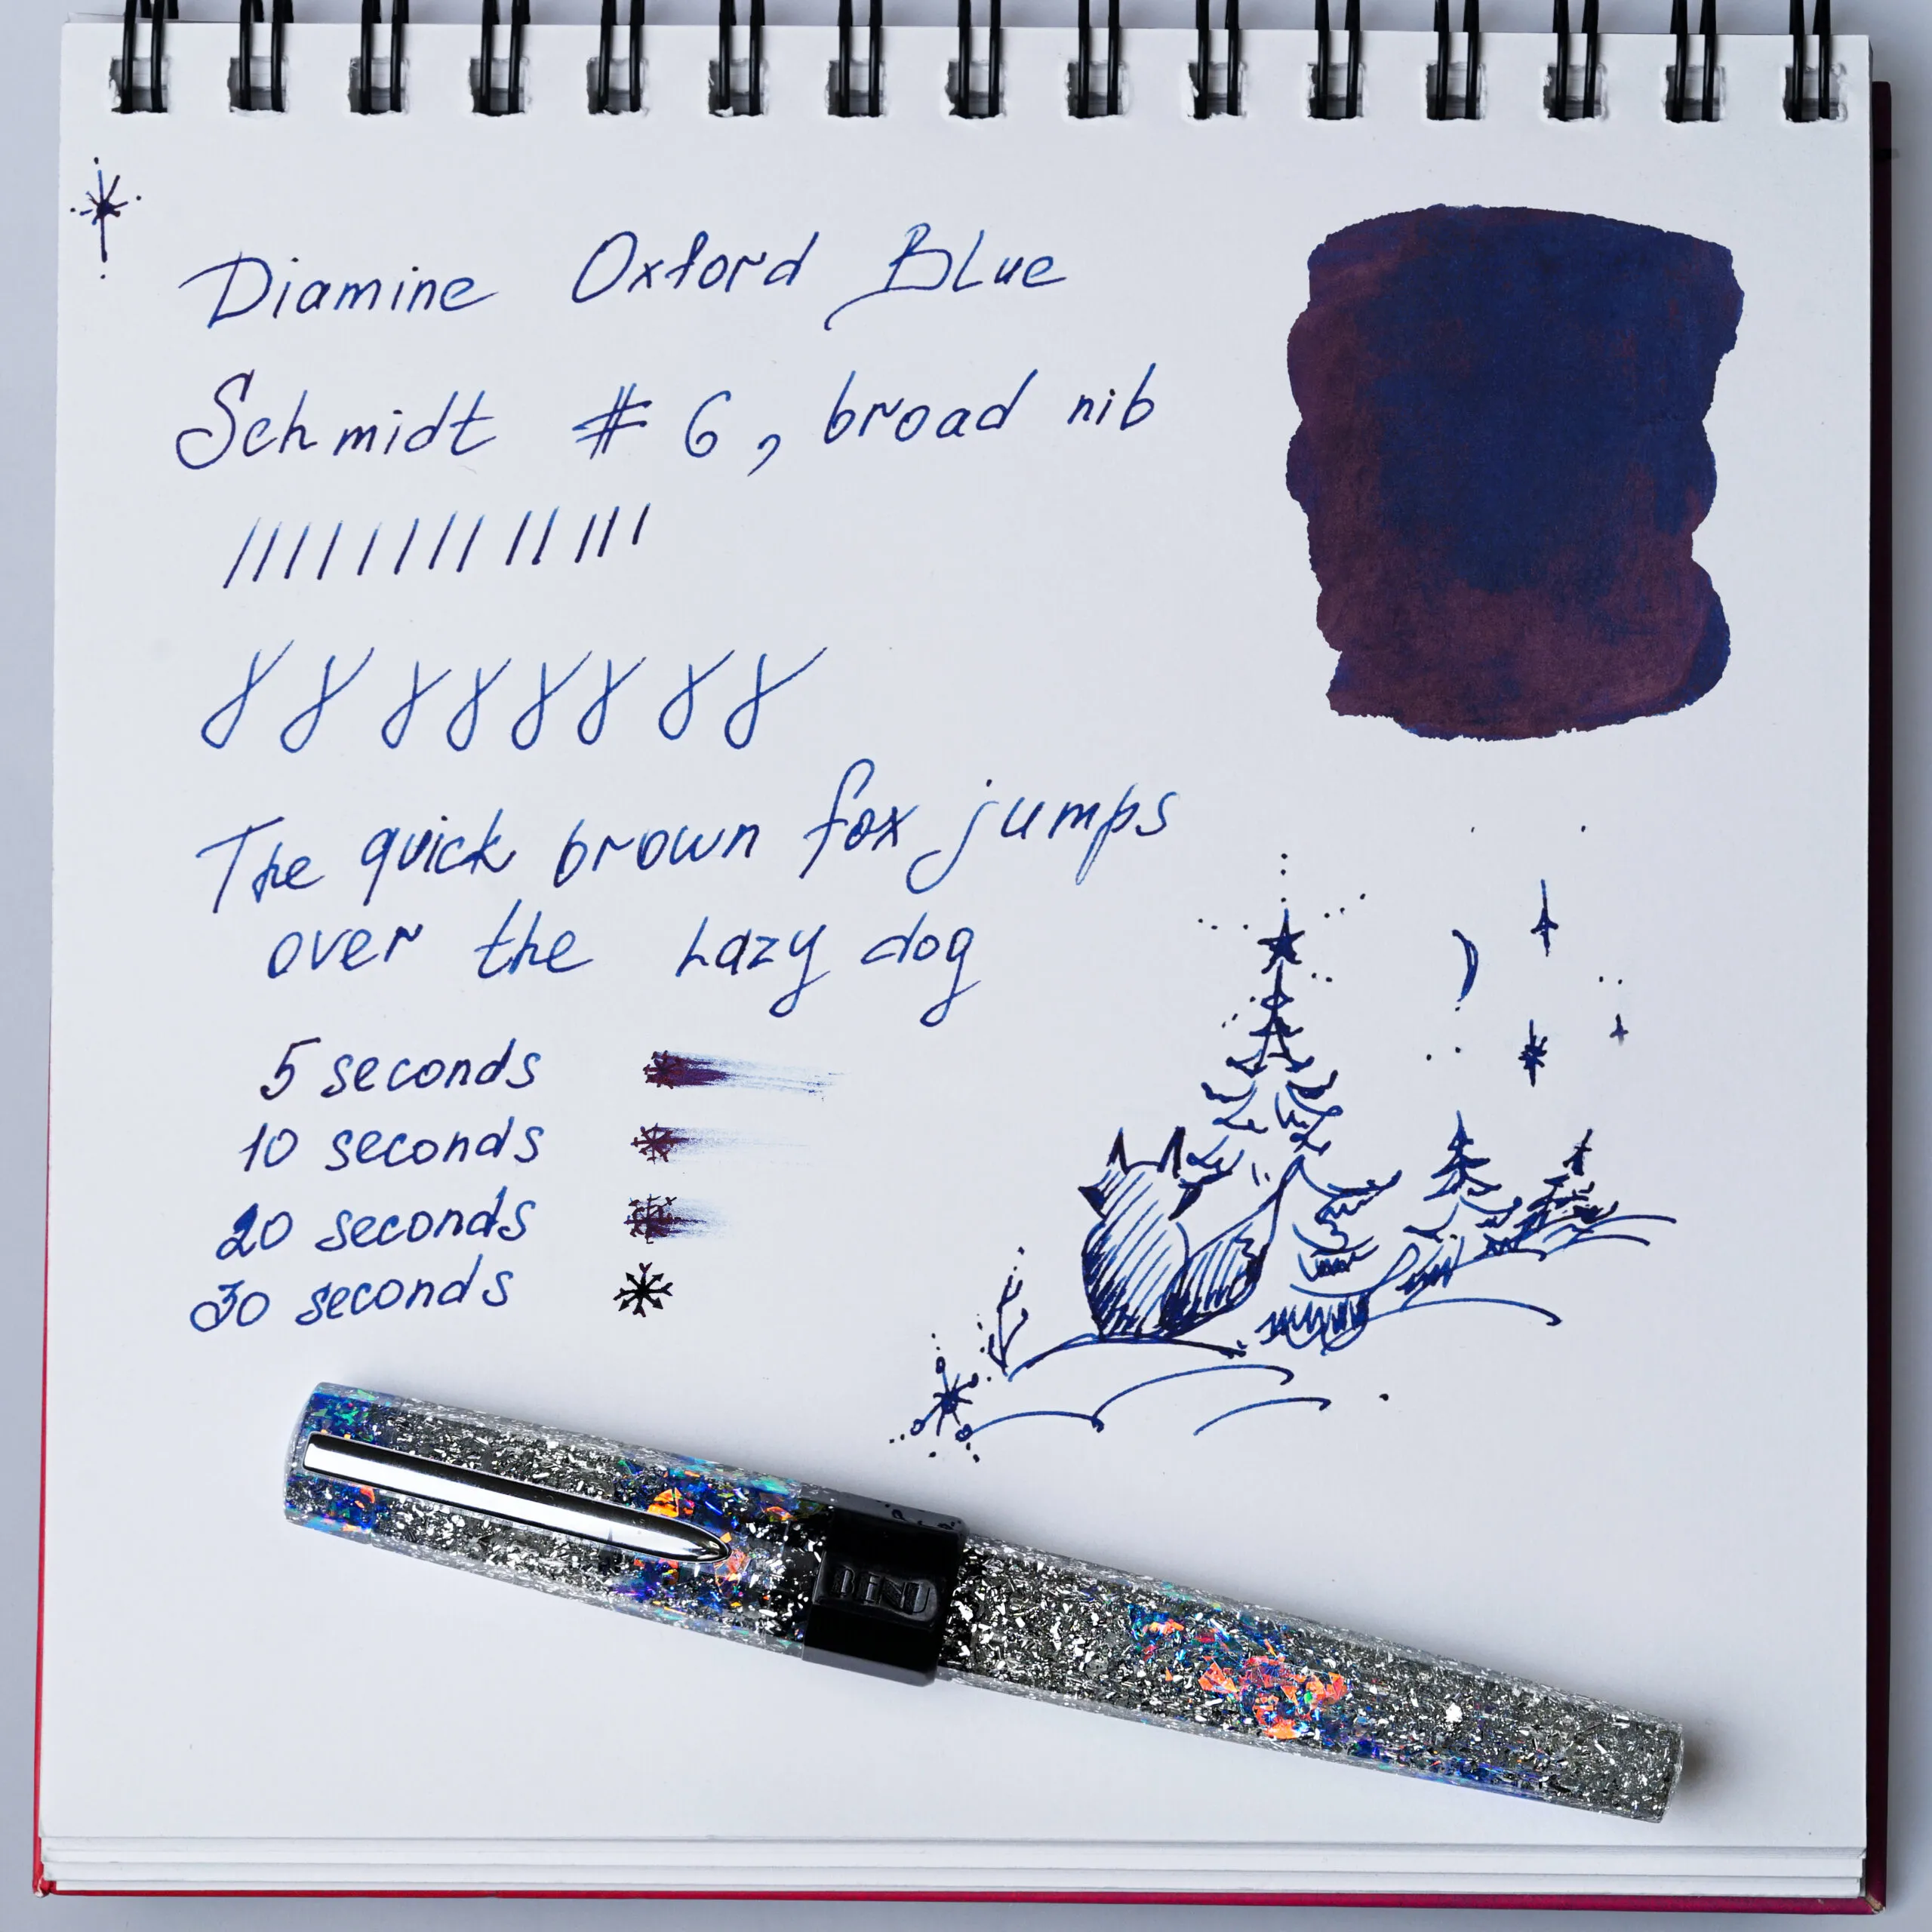 Diamine Oxford Blue
Schmidt # 6, broad nib
The quick brown fox jumps
over the Lazy dog
5 seconds
10 seconds
20 seconds
30 seconds
BENU